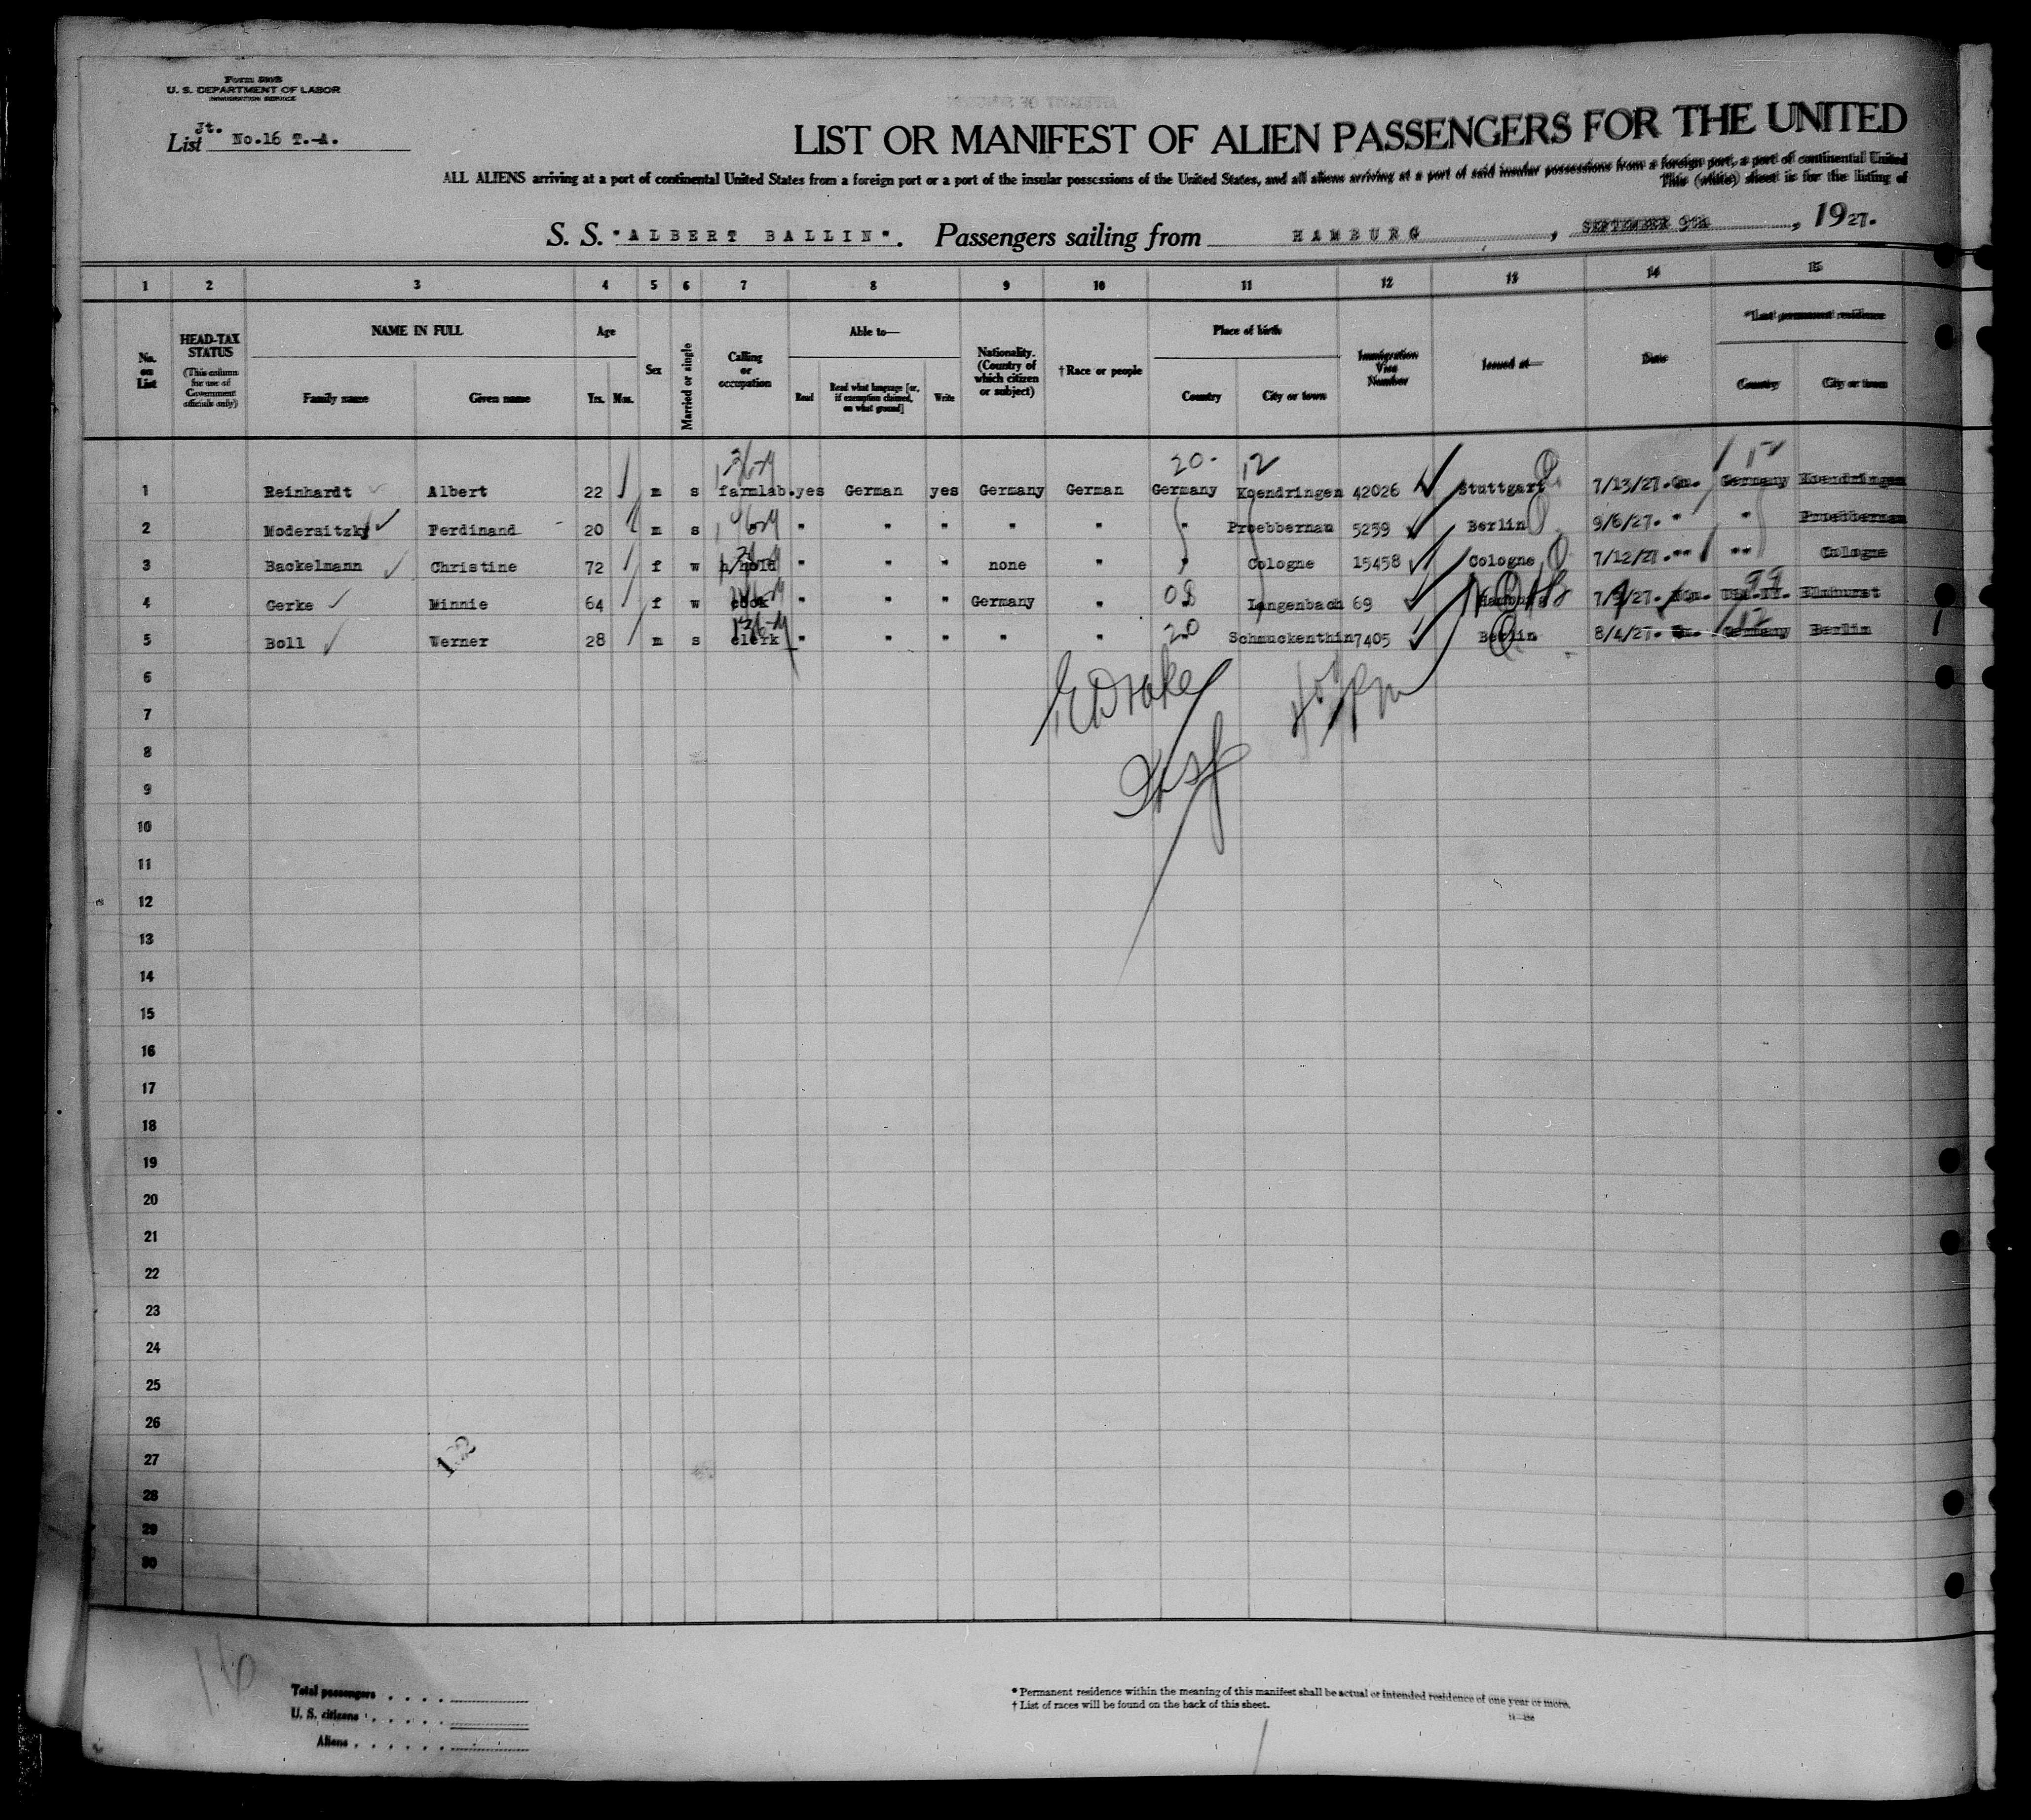 Form 500B
U. S. DEPARTMENT OF LABOR
IMMIGRATION SERVICE
Jt.
List No.16 T.-A.
LIST OR MANIFEST OF ALIEN PASSENGERS FOR THE UNITED
ALL ALIENS arriving at a port of continental United States from a foreign port or a port of the insular possessions of the United States, and all aliens arriving at a port of said insular possessions from a foreign port, a port of continental United
This (white) sheet is for the listing of
S. S. "ALBERT BALLIN". Passengers sailing from HAMBURG, SEPTEMBER 9th, 1927.
1 2 3 4 5 6 7 8 9 10 11 12 13 14 15
No. on List
HEAD-TAX STATUS
(This column for use of Government officials only)
NAME IN FULL
Family name Given name
Age
Yrs. Mos.
Sex
Married or single
Calling or occupation
Able to—
Read Read what language [or, if exemption claimed, on what ground] Write
Nationality. (Country of which citizen or subject)
†Race or people
Place of birth
Country City or town
Immigration Visa Number
Issued at—
Date
*Last permanent residence
Country City or town
20- 12 12
1 Reinhardt Albert 22 m s farmlab. yes German yes Germany German Germany Koendringen 42026 Stuttgart 7/13/27. Germany Koendringen
2 Modersitzky Ferdinand 20 m s " " " " " " " Proebbernau 5259 Berlin 9/6/27. " " Proebbernau
3 Backelmann Christine 72 f w h/hold " " " none " " Cologne 15458 Cologne 7/12/27. "" "" Cologne
99
4 Gerke Minnie 64 f w cook " " " Germany " 08 Langenbach 69 Hamburg 7/9/27. Elmhurst
12
5 Boll Werner 28 m s clerk " " " " " 20 Schmuckenthin 7405 Berlin 8/4/27. Germany Berlin
6
Drake
7
8
9
10
11
12
13
14
15
16
17
18
19
20
21
22
23
24
25
26
27
28
29
30
16
Total passengers
U. S. citizens
Aliens
* Permanent residence within the meaning of this manifest shall be actual or intended residence of one year or more.
† List of races will be found on the back of this sheet.